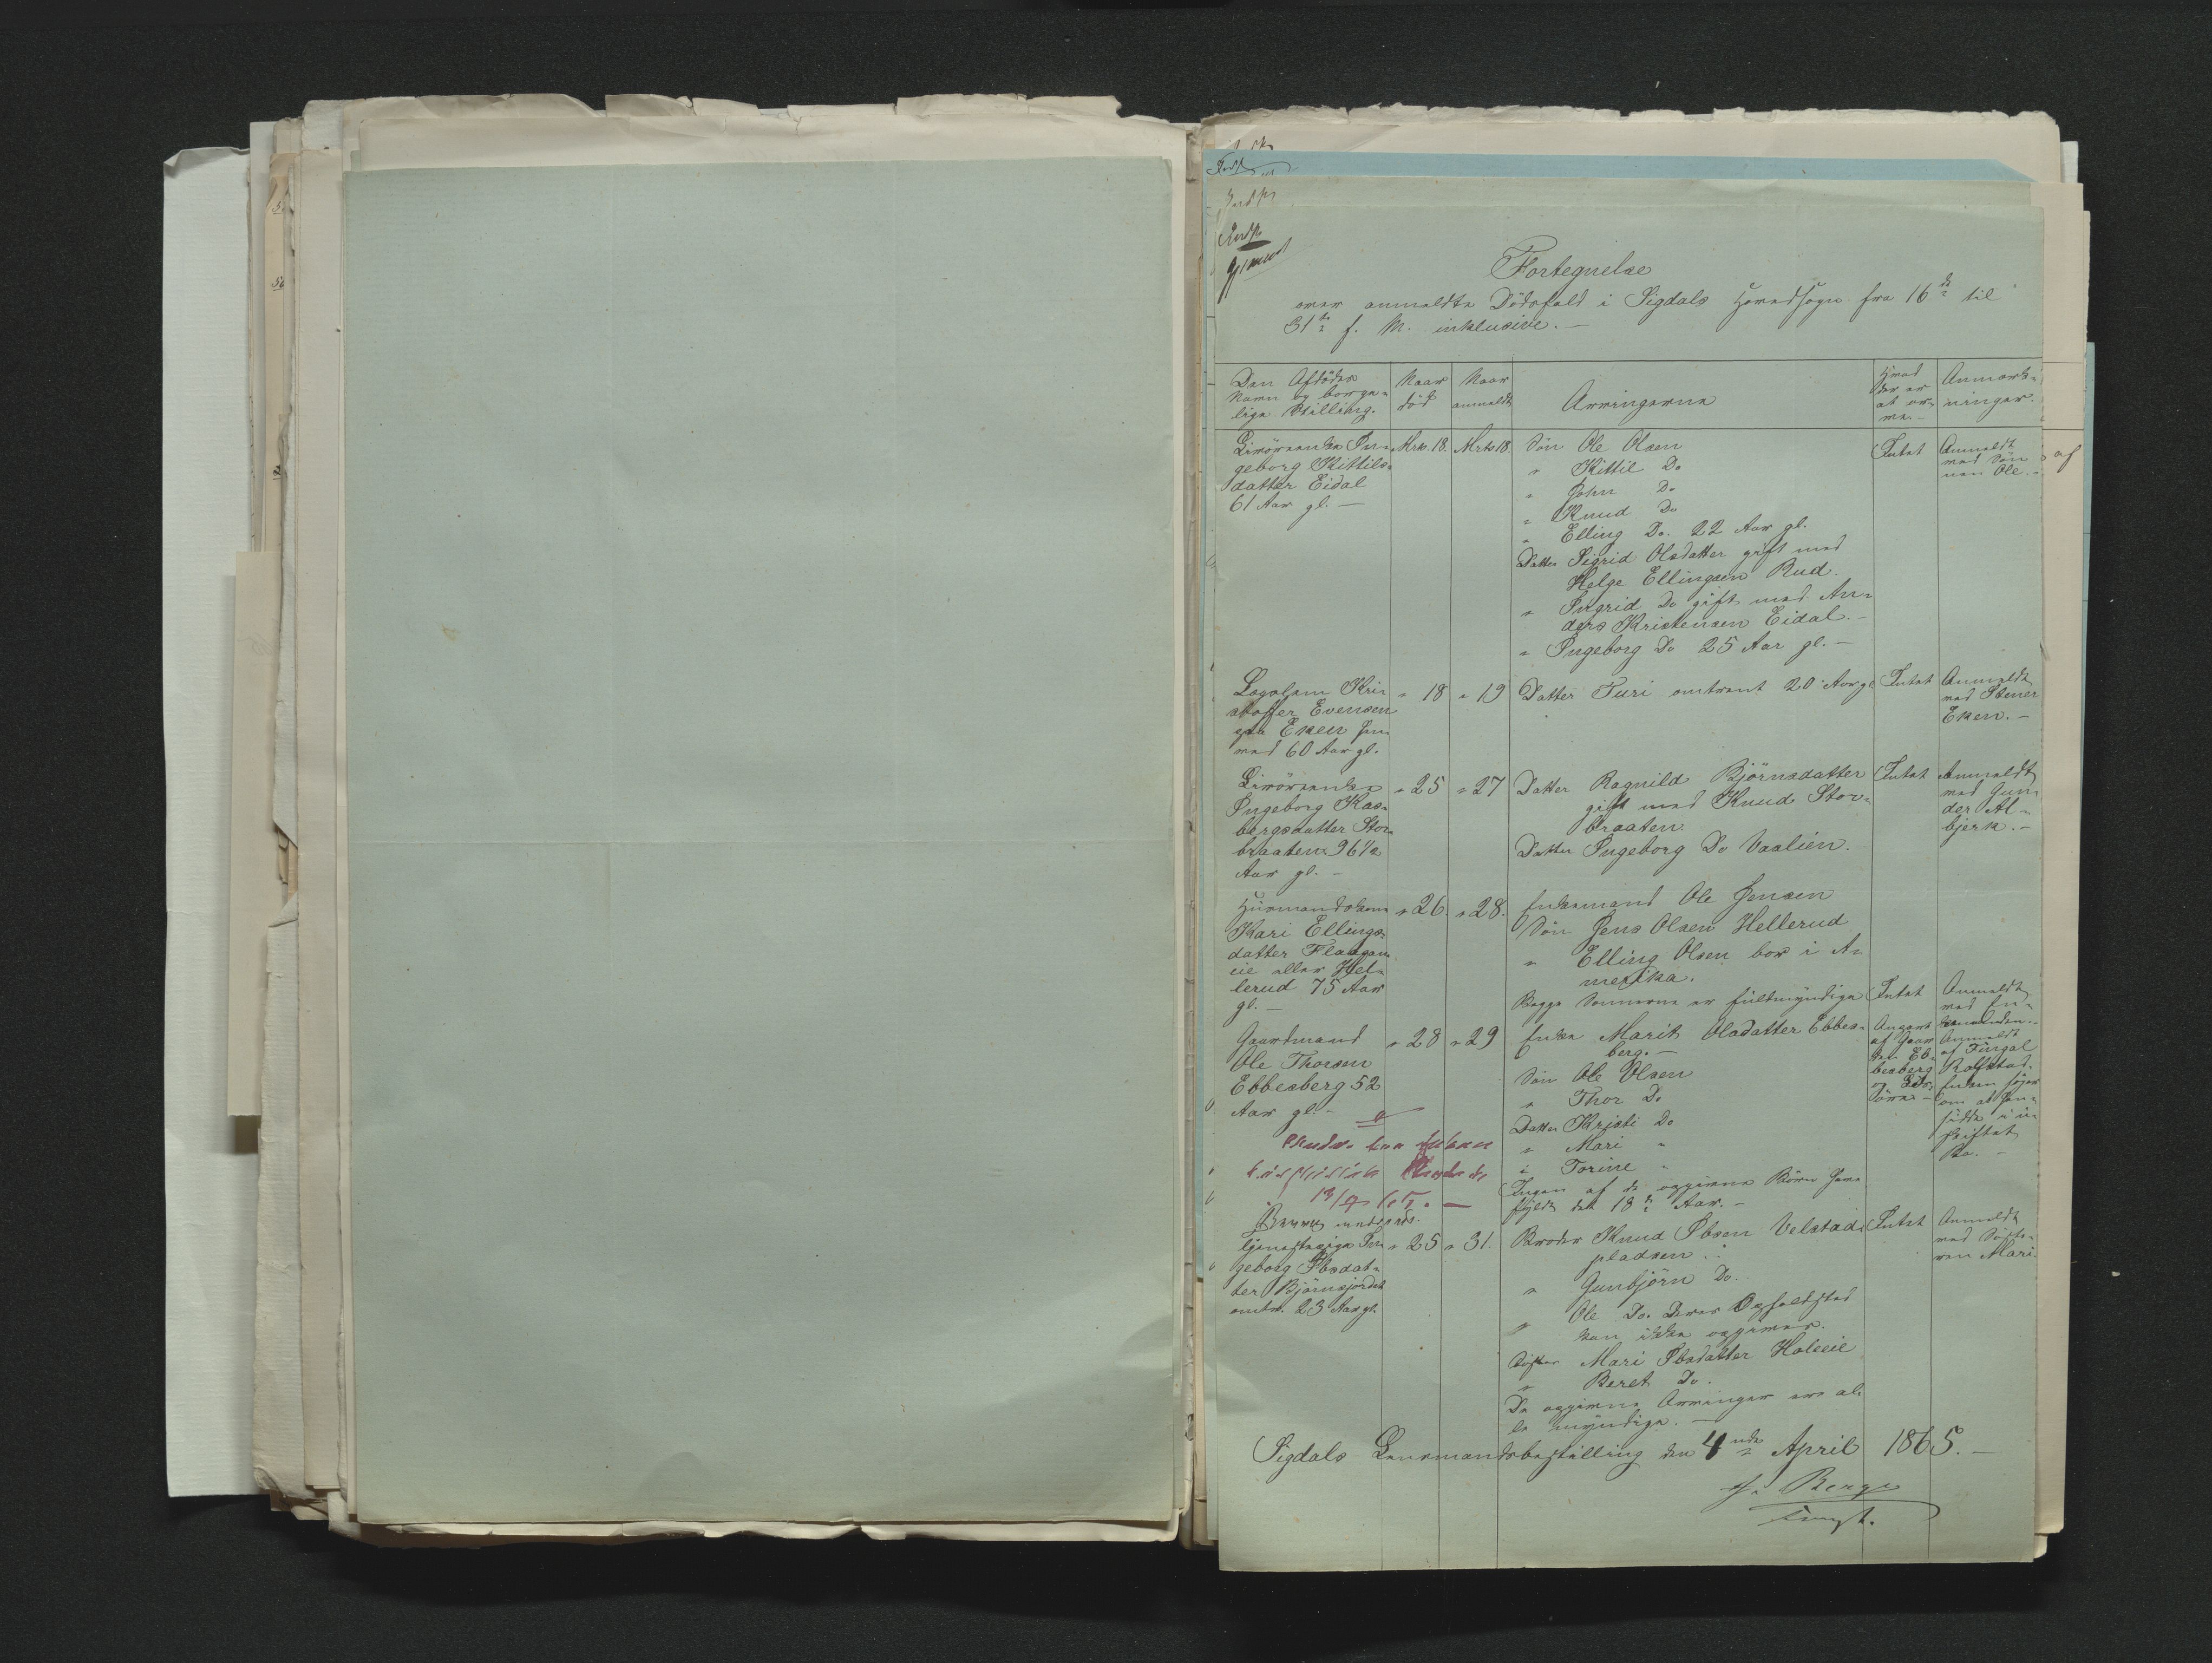 Fortegnelse
over anmeldte Dödsfald i Sigdals Hovedsogn fra 16de til
31te f. M. inklusive. —
Den Afdödes
Navn og borger-
lige Stilling.
Naar
död
Naar
anmeldt
Arvingerne
Hvad
der er
at ar-
ve. -
Anmærk-
ninger.
Livöreenke In-
geborg Kittils-
datter Eidal
61 Aar gl. —
Mrts. 18.
Mrts 18.
Sön Ole Olsen
" Kittil Do
" John Do
" Knud Do
" Elling Do. 22 Aar gl.
Datter Sigrid Olsdatter gift med
Helge Ellingsen Rud.
" Ingrid Do gift med An-
ders Kristensen Eidal. -
" Ingeborg Do 25 Aar gl. -
Intet
Anmeldt
ved Sön-
nen Ole. -
af
Logslem Kri-
stoffer Evensen
paa Eken hen-
ved 60 Aar gl.
" 18
" 19
Datter Turi omtrent 20 Aar gl
Intet
Anmeldt
ved Stener
Eken. -
Livöreenke
Ingeborg Kas-
bergsdatter Stor-
braaten 96½
Aar gl. -
" 25
" 27
Datter Ragnild Björnsdatter
gift med Knud Stor-
braaten
Datter Ingeborg Do Vaalien.
Intet
Anmeldt
ved Gun-
der Al-
bjerk. -
Huusmandskone
Kari Ellings-
datter Flaagan-
eie eller Hel-
lerud 75 Aar
gl. -
" 26.
" 28.
Enkemand Ole Jensen
Sön Jens Olsen Hellerud
" Elling Olsen bor i A-
merika.
Begge Sønnerne er fuldmyndige
Intet
Anmeldt
ved En-
kemanden. -
Gaardmand
Ole Thorsen
Ebbesberg 52
Aar gl. -
" 28
" 29
Enke Marit Olsdatter Ebbes-
berg. -
Sön Ole Olsen
" Thor Do
Datter Kristi Do
" Mari "
" Torine "
Ingen af de opgivne Börn have
fyldt det 18de Aar. -
Anpart
af Gaar-
den Eb-
besberg
og Lös-
øre. -
Anmeldt
af Fingal
Kolkstad.
Enken söger
om at hen-
sidde i u-
skiftet
Bo. -
13/9 65. —
ljenestepige In-
geborg Ibsdat-
ter Björnsjordet
omtr. 23 Aar gl.
" 25
" 31.
Broder Knud Ibsen Velstad-
pladsen
" Gunbjörn Do.
" Ole Do. Deres Opholdssted
kan ikke opgives.
Söster Mari Ibsdatter Holeeie
" Beret Do.
De opgivne Arvinger ere al-
le myndige. -
Intet
Anmeldt
ved Söste-
ren Mari
Sigdals Lensmandsbestilling den 4nde April 1865. -
H. Berge